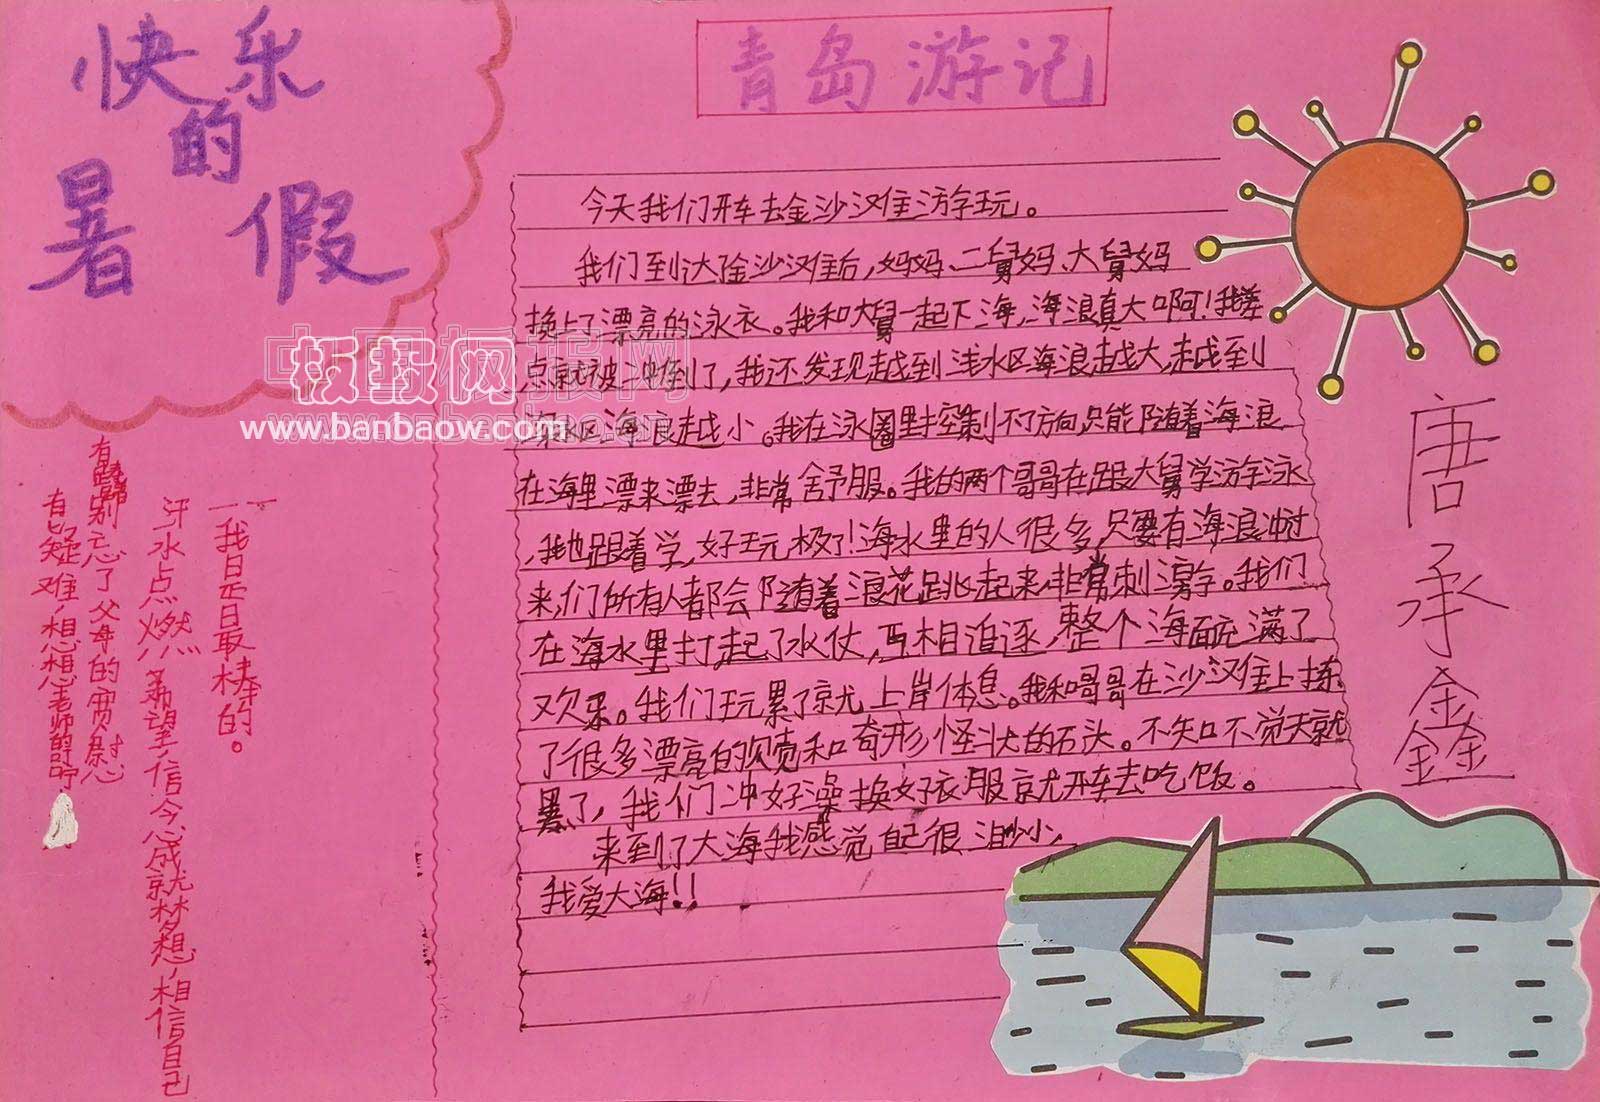 快乐
的
暑假
青岛游记
今天我们开车去金沙滩游玩。
我们到达金沙滩后，妈妈、二舅妈、大舅妈
换上了漂亮的泳衣。我和大舅一起下海，海浪真大啊！我差
点就被冲倒了，我还发现越到浅水区海浪越大，越到
深水区海浪越小。我在泳圈里控制不了方向，只能随着海浪
在海里漂来漂去，非常舒服。我的两个哥哥在跟大舅学游泳
，我也跟着学，好玩极了！海水里的人很多，只要有海浪冲过
来，们所有人都会随着浪花跳起来，非常刺激。我们
在海水里打起了水仗，互相追逐，整个海面充满了
欢乐。我们玩累了就上岸休息。我和哥哥在沙滩上拣
了很多漂亮的贝壳和奇形怪状的石头。不知不觉天就
黑了，我们冲好澡换好衣服就开车去吃饭。
来到了大海我感觉自己很渺小，
我爱大海！！
唐承鑫
中国板报网
板报网
www.banbaow.com
——我是最棒的。
汗水点燃希望，信念成就梦想，相信自己
有 别忘了父母的 
有疑难，想想老师的叮咛